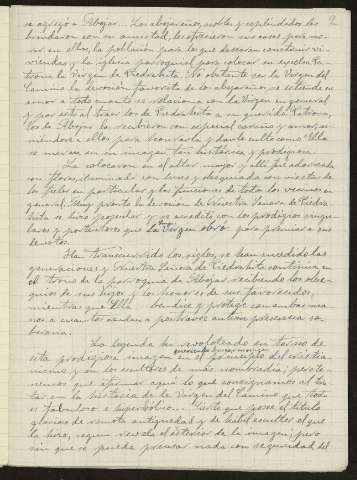 se agregó a Abejar. Los abejareños, nobles y espléndidos les 2
brindaron con su amistad, les ofrecieron sus casas para mo-
rar en ellas, la población para los que desearan construir vi-
viendas y la iglesia parroquial para colocar su excelsa Pa-
trona la Virgen de Piedrahita. No obstante ser la Virgen del
Camino la devoción favorita de los abejareños, se extiende su
amor a todo cuanto se relaciona con la Virgen en general
y por esto al traer los de Piedrahita a su querida Patrona,
los de Abejar la recibieron con especial cariño y amor,
a ellos para honrarla y darle culto como Ella
se merece en su imagen tan histórica y prodigiosa.
La colocaron en el altar mayor y allí fue adornada
con flores, iluminada con luces y obsequiada con visitas de
los fieles en particular y las funciones de todos los vecinos en
general. Muy pronto la devoción de Nuestra Señora de Piedra-
hita se hizo popular y se acreditó con los prodigios singu-
lares y portentosos que la Virgen obró para premiar a sus
devotos.
Han transcurrido los siglos, se han sucedido las
generaciones y Nuestra Señora de Piedrahita continúa en
el trono de la parroquia de Abejar recibiendo los obse-
quios de sus hijos y los honores de sus favorecidos,
mientras que Ella bendice y protege con ambas ma-
nos a cuantos acuden a postrarse ante su presencia so-
berana.
La leyenda ha revoloteado en torno de
esta prodigiosa imagen en el principio del cristia-
nismo y en los escultores de más nombradía; pero te-
nemos que afirmar aquí lo que consignamos al tra-
tar en la historia de la Virgen del Camino que todo
es fabuloso e hiperbólico. Cierto que posee el título
glorioso de remota antigüedad y de hábil escultor el que
la hizo, según revela el exterior de la imagen; pero
sin que se pueda precisar nada con seguridad del